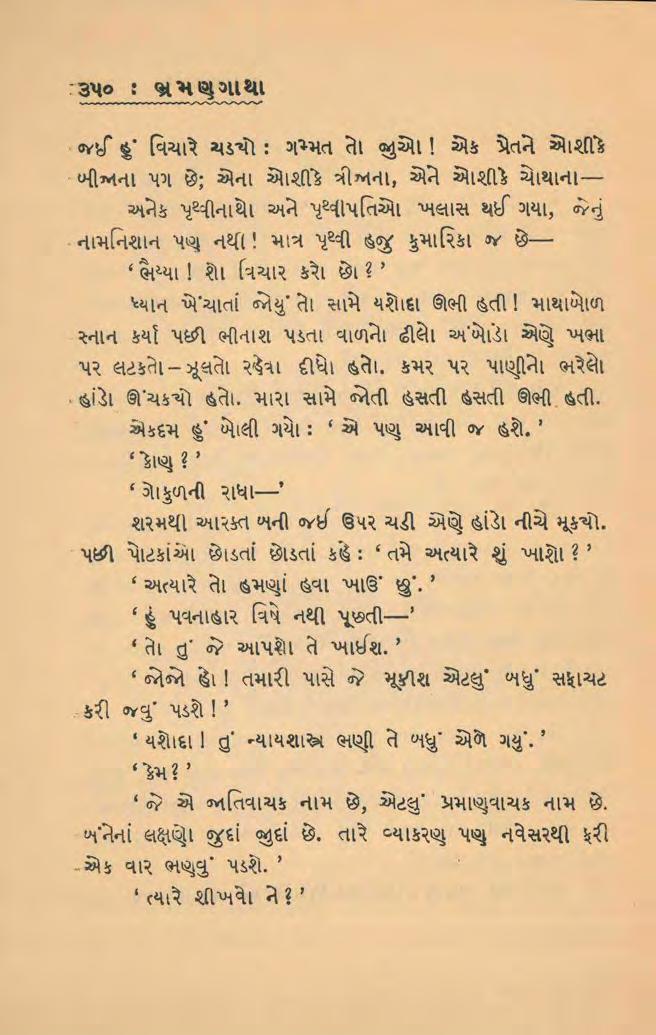 ૩૫૦ : ભ્રમણગાથા
જઈ હું વિચારે ચડ્યો : ગમ્મત તો જુઓ ! એક પ્રેતને ઓશીકે
બીજાના પગ છે; એના ઓશીકે ત્રીજાના, એને ઓશીકે ચોથાના—
અનેક પૃથ્વીનાથો અને પૃથ્વીપતિઓ ખલાસ થઈ ગયા, જેનું
નામનિશાન પણ નથી ! માત્ર પૃથ્વી હજુ કુમારિકા જ છે—
‘ ભૈય્યા ! શો વિચાર કરો છો ? ’
ધ્યાન ખેંચાતાં જોયું તો સામે યશોદા ઊભી હતી ! માથાબોળ
સ્નાન કર્યા પછી ભીનાશ પડતા વાળનો ઢીલો અંબોડો એણે ખભા
પર લટકતો – ઝૂલતો રહેવા દીધો હતો. કમર પર પાણીનો ભરેલો
હાંડો ઊંચક્યો હતો. મારા સામે જોતી હસતી હસતી ઊભી હતી.
એકદમ હું બોલી ગયો : ‘ એ પણ આવી જ હશે. ’
‘ કોણ ? ’
‘ ગોકુળની રાધા—’
શરમથી આરક્ત બની જઈ ઉપર ચડી એણે હાંડો નીચે મૂક્યો.
પછી પોટકાંઓ છોડતાં છોડતાં કહે : ‘ તમે અત્યારે શું ખાશો ? ’
‘ અત્યારે તો હમણાં હવા ખાઉં છું. ’
‘ હું પવનાહાર વિષે નથી પૂછતી—’
‘ તો તું જે આપશે તે ખાઈશ. ’
‘ જોજો હો ! તમારી પાસે જે મૂકીશ એટલું બધું સફાચટ
કરી જવું પડશે ! ’
‘ યશોદા ! તું ન્યાયશાસ્ત્ર ભણી તે બધું એળે ગયું. ’
‘ કેમ ? ’
‘ જે એ જાતિવાચક નામ છે, એટલું પ્રમાણવાચક નામ છે.
બંનેનાં લક્ષણો જુદાં જુદાં છે. તારે વ્યાકરણ પણ નવેસરથી ફરી
એક વાર ભણવું પડશે. ’
‘ ત્યારે શીખવો ને ? ’